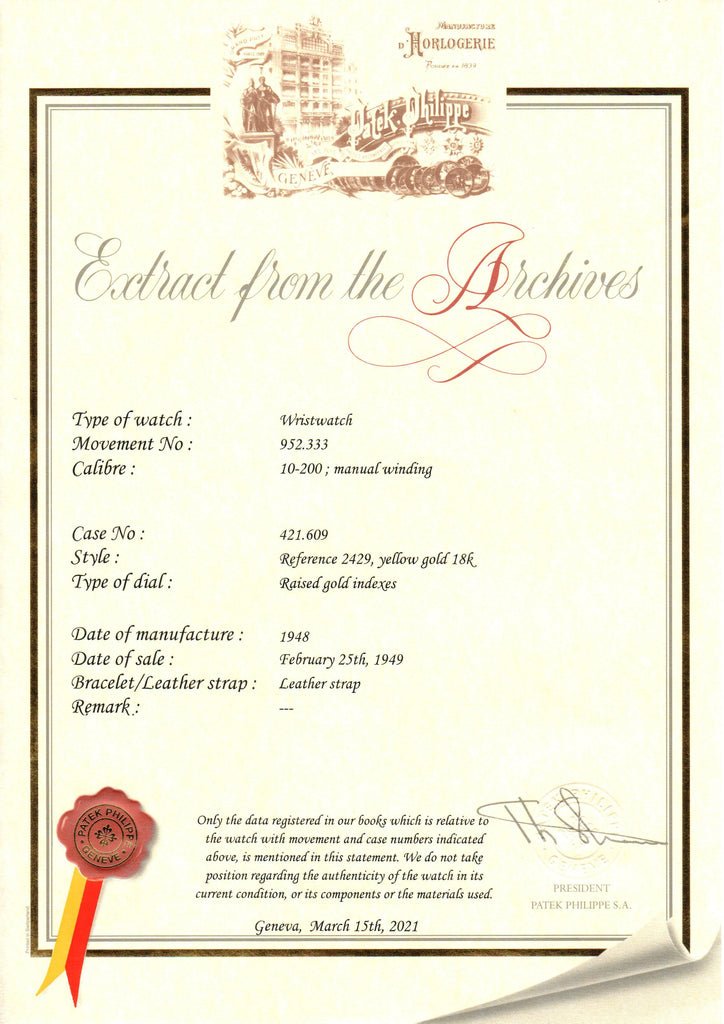 MANUFACTURE
D'HORLOGERIE
FONDÉE EN 1839
Patek Philippe
GENÈVE
Extract from the Archives
Type of watch : Wristwatch
Movement No : 952.333
Calibre : 10-200 ; manual winding
Case No : 421.609
Style : Reference 2429, yellow gold 18k
Type of dial : Raised gold indexes
Date of manufacture : 1948
Date of sale : February 25th, 1949
Bracelet/Leather strap : Leather strap
Remark : ---
PATEK PHILIPPE
GENEVE
Only the data registered in our books which is relative to
the watch with movement and case numbers indicated
above, is mentioned in this statement. We do not take
position regarding the authenticity of the watch in its
current condition, or its components or the materials used.
Geneva, March 15th, 2021
PRESIDENT
PATEK PHILIPPE S.A.
Printed in Switzerland